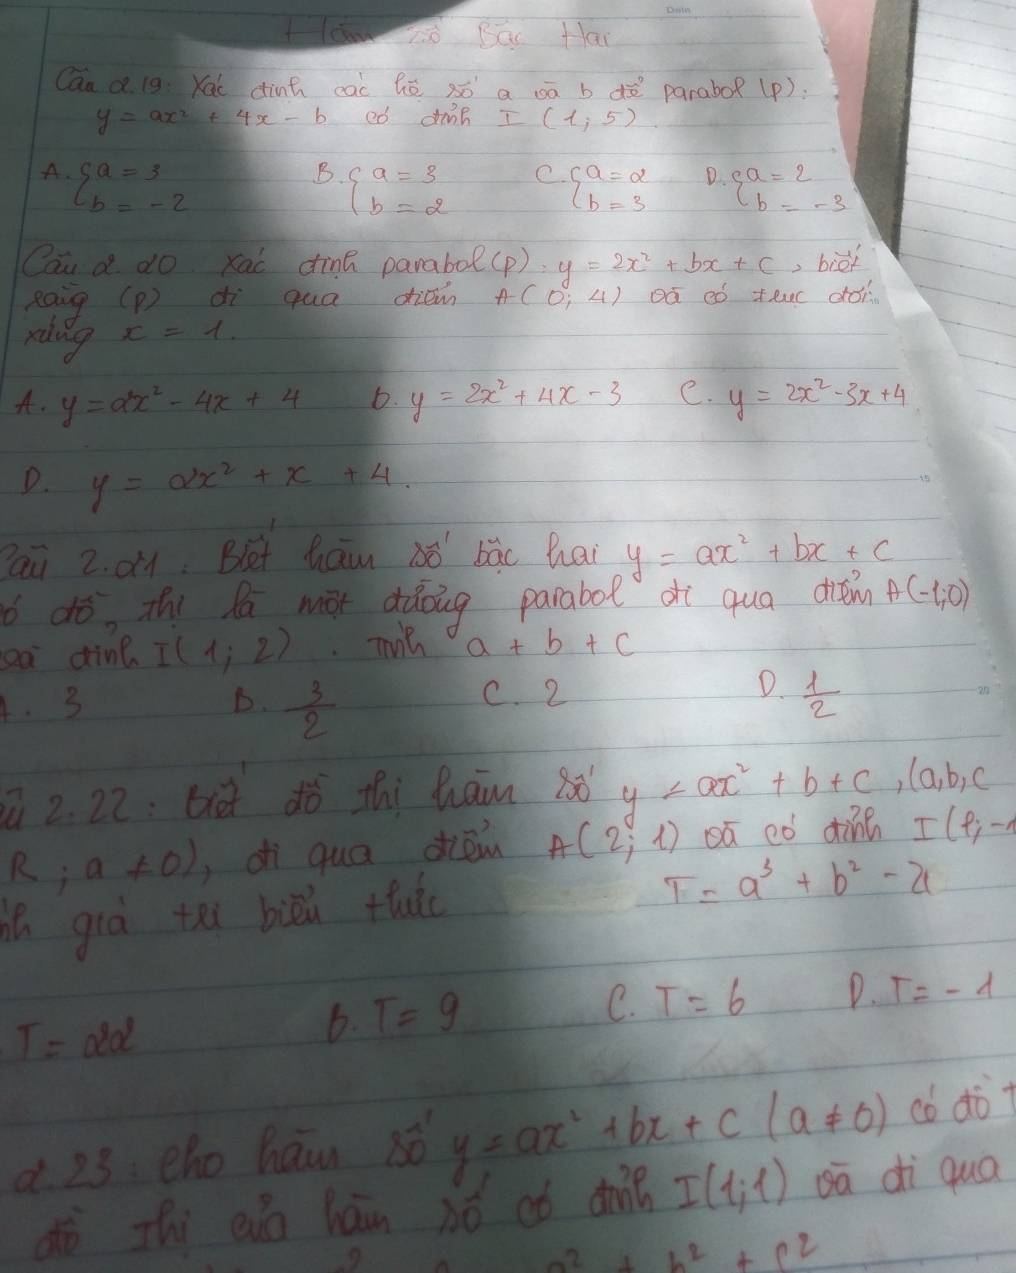 Date
Hàm số Bậc Hai
Câu 2.19: Xác định các hệ số a và b để parabol (P):
y = ax² + 4x - b có đỉnh I (1; 5)
A. { a = 3 b = -2 B. { a = 3 b = 2 C. { a = 2 b = 3 D. { a = 2 b = -3
Câu 2.20 Xác định parabol (P): y = 2x² + bx + c, biết
rằng (P) đi qua điểm A(0; 4) và có trục đối
xứng x = 1.
A. y = 2x² - 4x + 4 B. y = 2x² + 4x - 3 C. y = 2x² - 3x + 4
D. y = 2x² + x + 4.
15
Câu 2.21: Biết hàm số bậc hai y = ax² + bx + c
có đồ thị là một đường parabol đi qua điểm A(-1;0)
và đỉnh I(1; 2). Tính a + b + c
A. 3 B. 3/2 C. 2 D. 1/2
20
2.22: biết đồ thị hàm số y = ax² + b + c, (a,b,c
R; a ≠ 0), đi qua điểm A(2; 1) và có đỉnh I(1; -1
giá trị biểu thức T = a³ + b² - 2
T = 22 B. T = 9 C. T = 6 D. T = -1
2.23: cho hàm số y = ax² + bx + c (a ≠ 0) có đồ t
đồ thị của hàm số có đỉnh I(1;1) và đi qua
a² + b² + c²